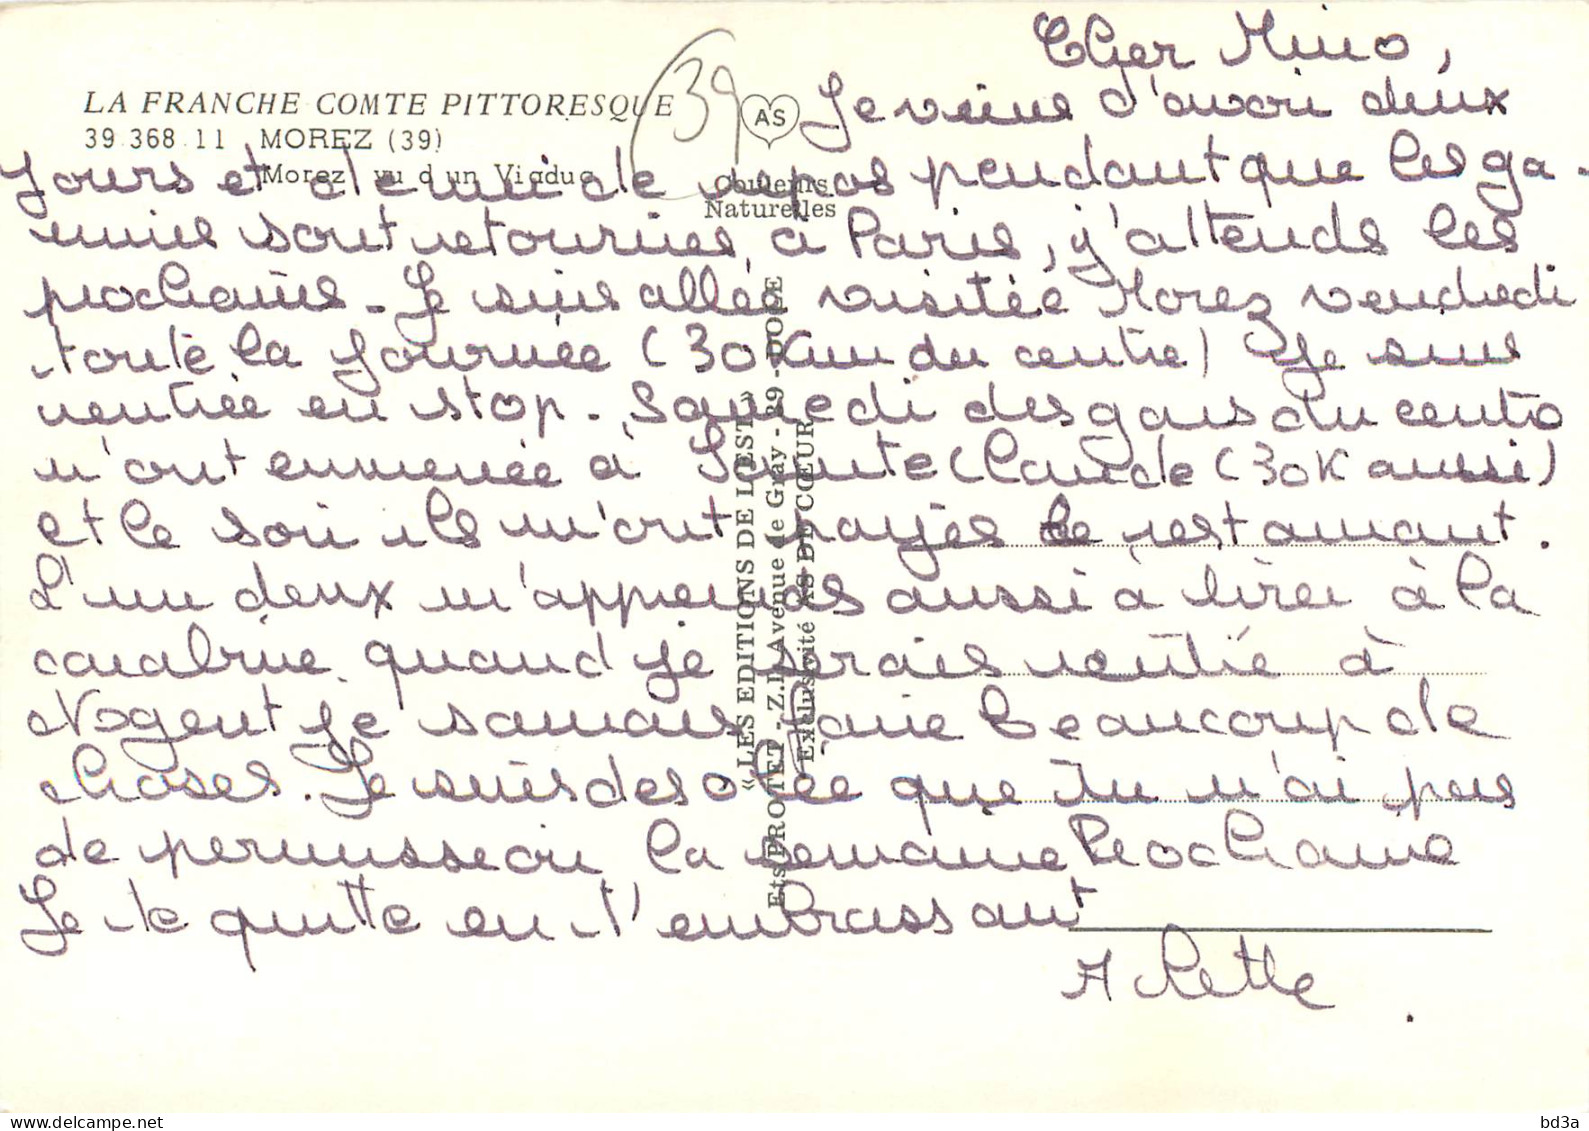 Cher Mino,
LA FRANCHE COMTE PITTORESQUE
39
AS
Je viens d'avoir deux
39 368 11 MOREZ (39)
Morez vu d'un Viaduc
jours et demi de repos pendant que les ga-
Couleurs
Naturelles
mins sont retournés à Paris, j'attends les
prochains - Je suis allée visitée Morez vendredi
toute la journée (30 Km du centre) Je suis
rentrée en stop. Samedi des gars du centre
m'ont emmenée à Sainte Claude (30K aussi)
et le soir ils m'ont payés le restaurant.
L'un deux m'apprends aussi à tirer à la
carabine quand je serais rentré à
Nogent je saurais faire beaucoup de
choses. Je suis desolée que tu n'ai pas
de permission la semaine Prochaine
Je te quitte en t'embrassant
Arlette
« LES EDITIONS DE L'EST »
Ets PROTET - Z.I. Avenue de Gray - 39 - DOLE
Exclusivité AS DE CŒUR
bd3a